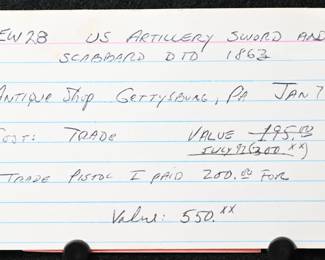 EW28 US ARTILLERY SWORD AND
SCABBARD DTD 1863
ANTIQUE SHOP GETTYSBURG, PA JAN 7
COST: TRADE VALUE 195.00
JULY 92 (300.xx)
TRADE PISTOL I PAID 200.00 FOR
Value: 550.xx